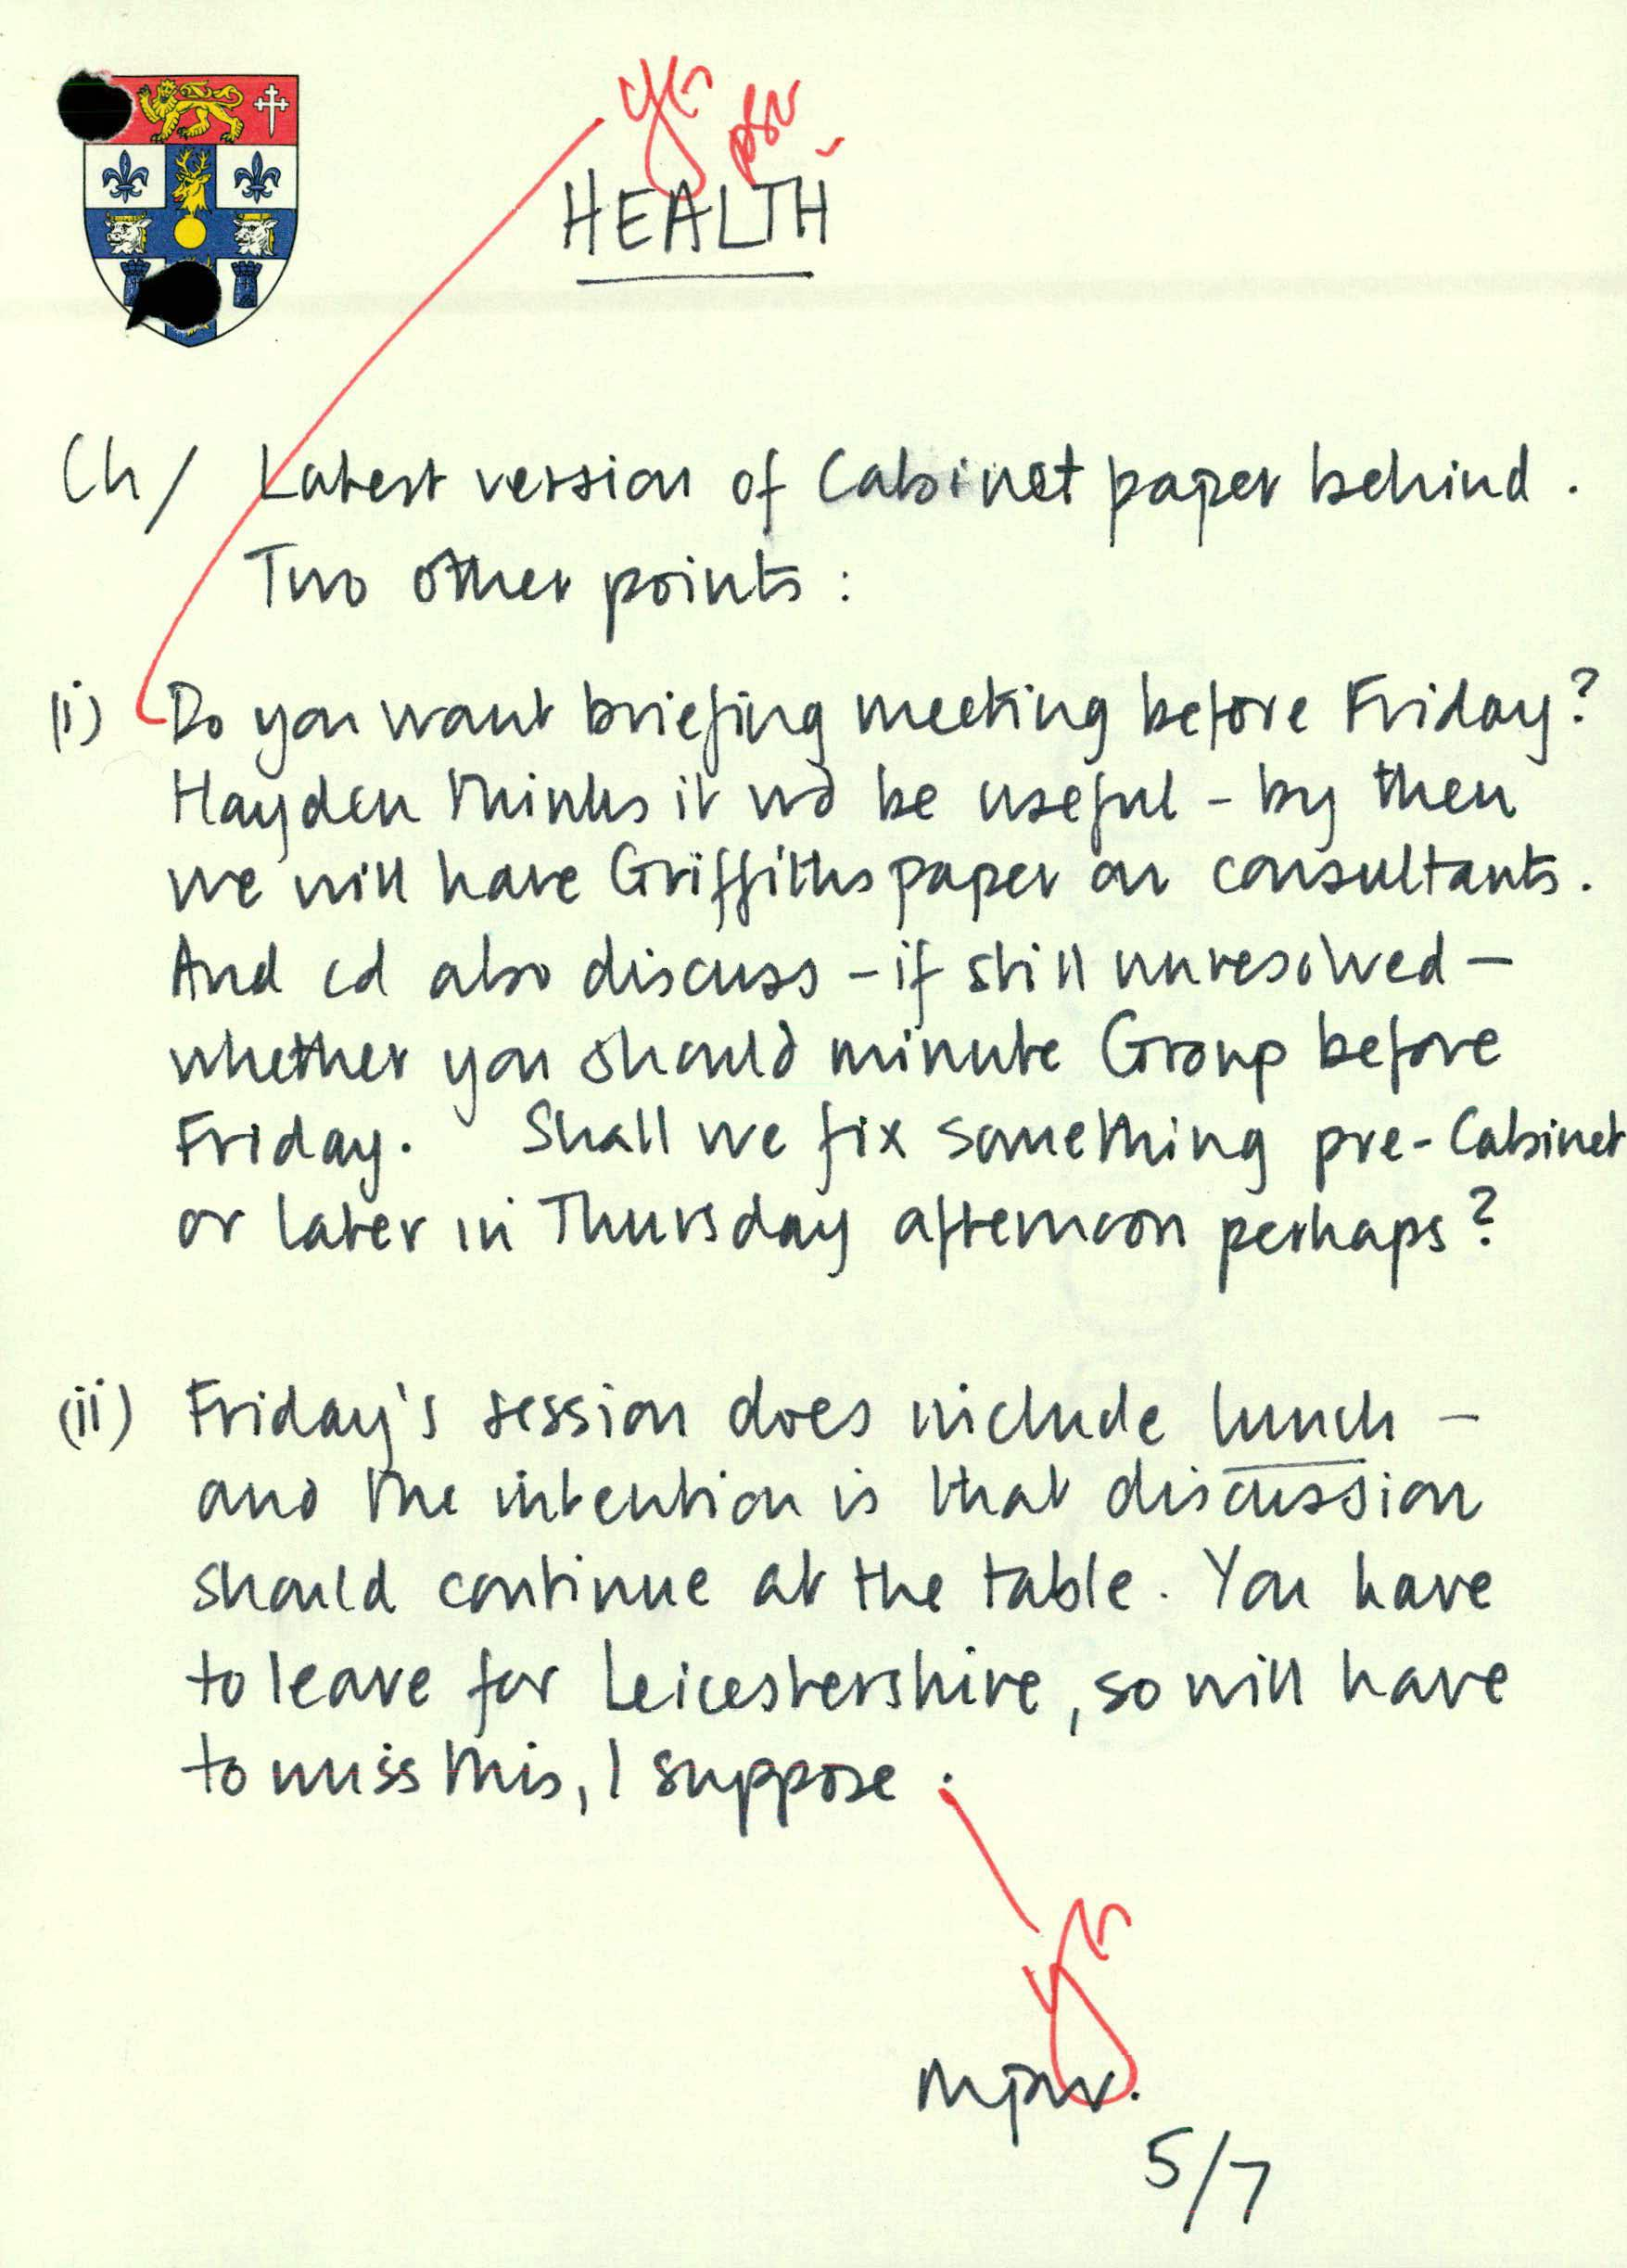 Yes
HEALTH
Ch/ Latest version of Cabinet paper behind.
Two other points:
(i) Do you want briefing meeting before Friday?
Hayden thinks it wd be useful - by then
we will have Griffiths paper on consultants.
And cd also discuss - if still unresolved -
whether you should minute Group before
Friday. Shall we fix something pre-Cabinet
or later in Thursday afternoon perhaps?
(ii) Friday's session does include lunch -
and the intention is that discussion
should continue at the table. You have
to leave for Leicestershire, so will have
to miss this, I suppose.
Yes
mpw.
5/7